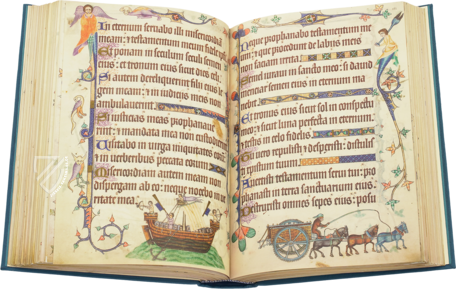 In eternum servabo illi misericordiam
meam: et testamentum meum
Et ponam in seculum seculi semen
eius: et tronum eius sicut dies celi.
Si autem dereliquerint filii eius le
gem meam: et in iudiciis meis non
ambulaverint
Si iusticias meas prophanave
rint: et mandata mea non custodierint
Visitabo in virga iniquitates eorum
et in verberibus peccata eorum
Misericordiam autem meam non
dispergam ab eo: neque nocebo in ve
ritate mea.
Neque prophanabo testamentum me
um: et que procedunt de labiis meis
non faciam irrita
Semel iuravi in sancto meo: si david
menciar semen eius in eternum ma
nebit.
Et tronus eius sicut sol in conspectu
meo: et sicut luna perfecta in eternum
et testis in celo fidelis
Tu vero repulisti et despexisti: distulisti
christum tuum
Avertisti testamentum servi tui: pro
phanasti in terra sanctuarium eius.
Destruxisti omnes sepes eius: posu